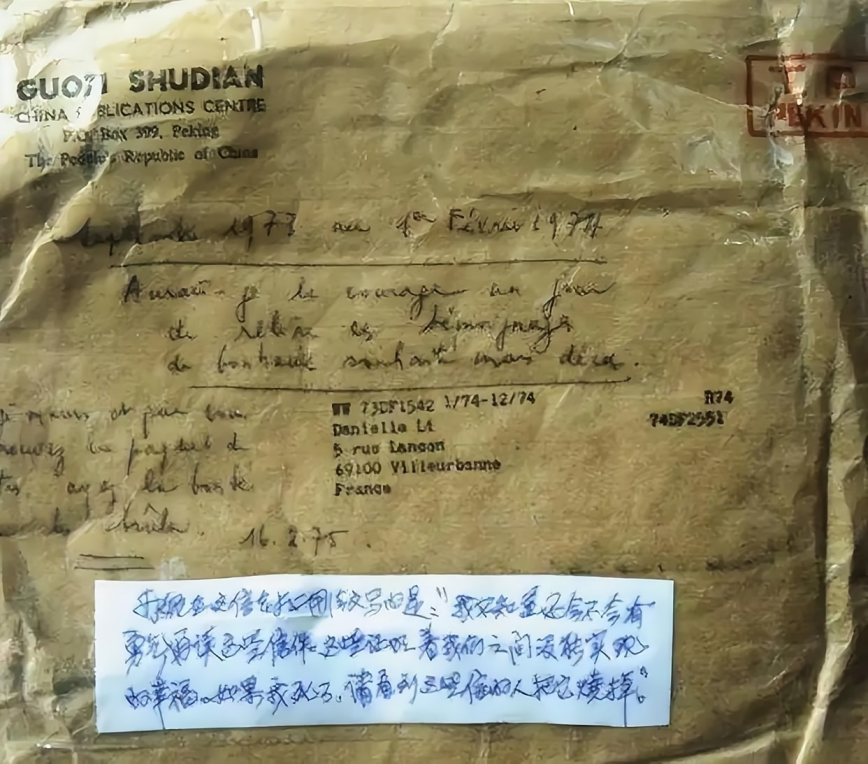 GUOZI SHUDIAN
CHINA PUBLICATIONS CENTRE
P.O. Box 399, Peking
The People's Republic of China
T P
PEKIN
Septembre 1973 au 1er Février 1974
Aurai-je le courage un jour
de relire ces témoignages
de bonheur souhaité mais déçu.
meurs et que vous
trouvez ce paquet de
ayez la bonté
de les brûler.
16.2.75.
WW 73DF1542 1/74-12/74 R74
74DF2551
Danielle Li
5 rue Lançon
69100 Villeurbanne
France
我现在这信封上用法文写的是:“我不知道还会不会有
勇气再读这些信件。这些证明着我们之间没能实现
的幸福。如果我死了,请看到这些信的人把它烧掉。”